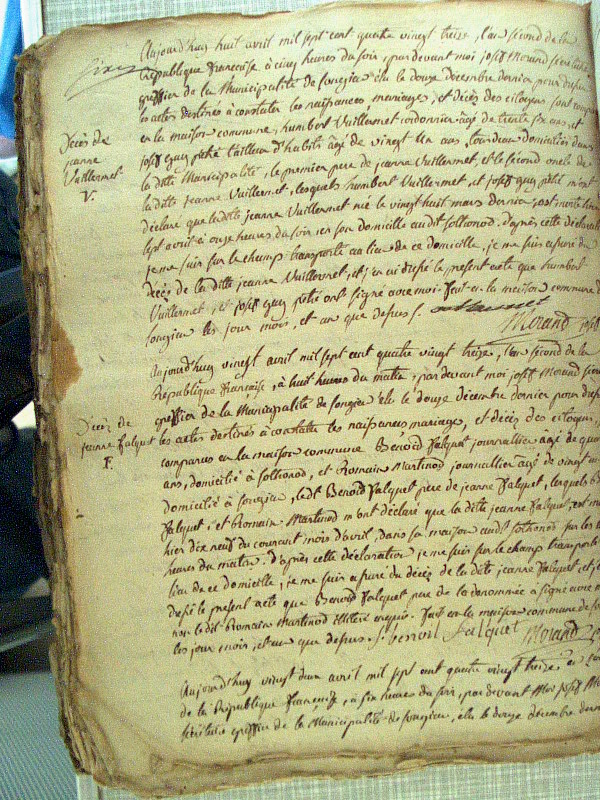 Aujourd'huy huit avril mil sept cent quatre vingt treize, l'an second de la
République françoise à cinq heures du soir, par devant moi Joseph Morand secrétaire
greffier de la Municipalité de Songieu élu le douze décembre dernier pour
les actes destinés à constater les naissances mariages, et décès des citoyens sont
en la maison commune, humbert Vuillermet cordonnier agé de trente six ans, et
Décès de
jeanne
Vuillermet
V.
joseph guy petit tailleur d'habits agé de vingt un ans, tous deux domiciliés dans
la ditte Municipalité, le premier pere de jeanne Vuillermet, et le second oncle de
la ditte jeanne Vuillermet, lesquels humbert Vuillermet, et joseph guy petit m'ont
déclaré que la ditte jeanne Vuillermet née le vingt huit mars dernier, est morte hier
sept avril à onze heures du soir, en son domicile audit sothonod. d'après cette déclaration
je me suis sur le champ transporté au lieu de ce domicile, je me suis assuré du
décès de la ditte jeanne Vuillermet, et j'en ai dressé le présent acte que humbert
Vuillermet, et joseph guy petit ont signé avec moi. fait en la maison commune de
Songieu les jour mois, et an que dessus
Morand
Aujourd'huy vingt avril mil sept cent quatre vingt treize, l'an second de la
République françoise, à huit heures du matin, par devant moi joseph Morand
greffier de la Municipalité de Songieu élu le douze décembre dernier pour
Décès de
jeanne falquet
F.
les actes destinés à constater les naissances mariages, et décès des citoyens,
comparus en la maison commune Benoid falquet journallier agé de
ans, domicilié à sothonod, et Romain Martinod journallier agé de vingt
domicilié à Songieu, ledt Benoid falquet pere de jeanne falquet, lesquels
falquet, et Romain Martinod m'ont déclaré que la ditte jeanne falquet, est
hier dix neuf du courant mois d'avril, dans sa maison audt sothonod sur les
heures du matin. d'après cette déclaration je me suis sur le champ transporté
lieu de ce domicile, je me suis assuré du décès de la ditte jeanne falquet, et
dressé le présent acte que Benoid falquet pere de la dénommée a signé avec
non ledit Romain Martinod illiteré enquis. fait en la maison commune de
les jour mois, et an que dessus. benoit falquet Morand
Aujourd'huy vingt d'un avril mil sept cent quatre vingt treize,
de la République françoise, à six heures du soir, par devant Moi joseph
secrétaire greffier de la Municipalité de Songieu, élu le douze décembre